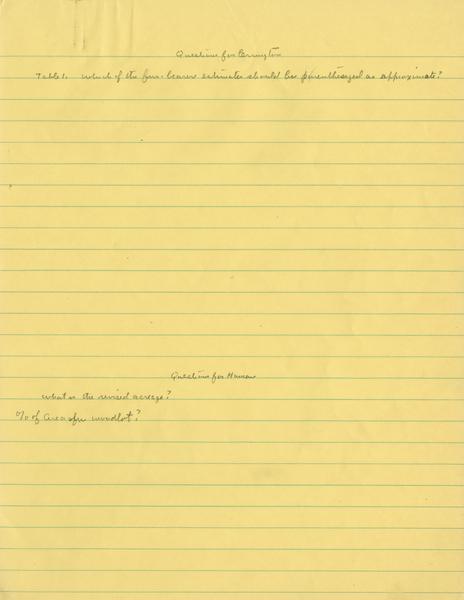 Questions for Errington
Table 1. which of the fur-bearer estimates should be parenthesized as approximate?
Questions for
what is the revised acreage?
% of area in woodlot?